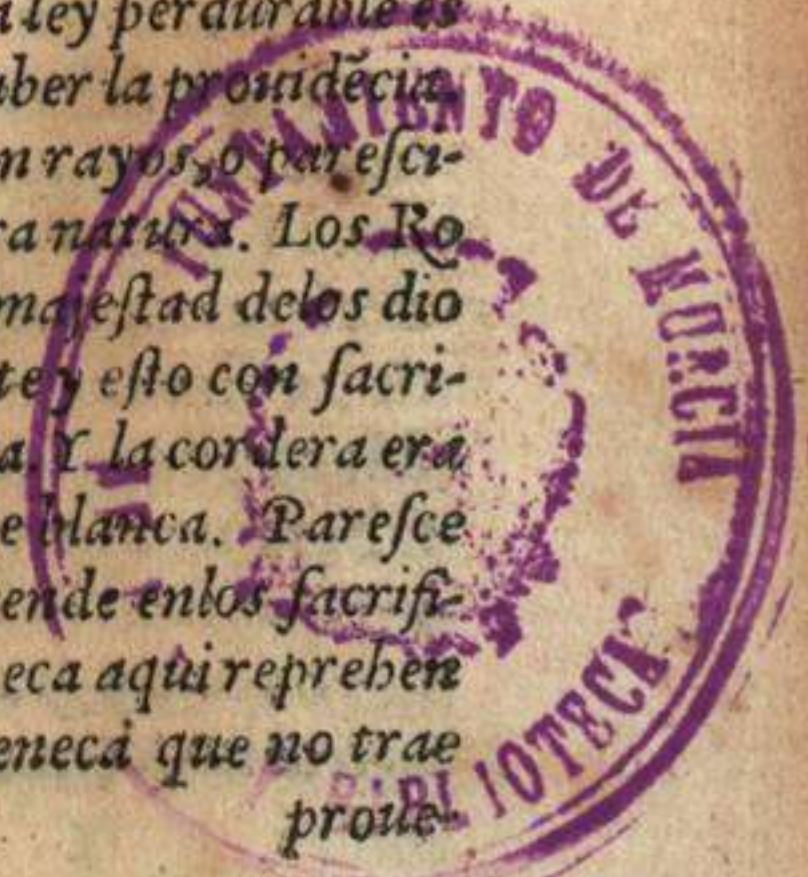 ley perdurable es
aber la prouidẽcia.
n rayos, o paresci-
ra natura. Los Ro
majestad delos dio
te y esto con sacri-
a. Y la cordera era
e blanca. Paresce
ende enlos sacrifi-
eca aqui reprehen
eneca que no trae
proue-
AYUNTAMIENTO DE MURCIA
BIBLIOTECA